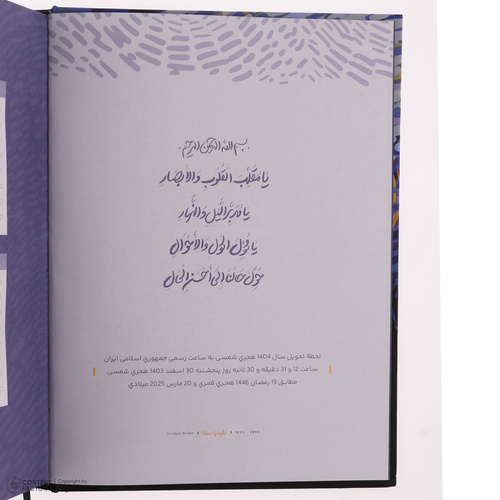 بسم الله الرحمن الرحیم
یا مُقَلِّبَ القُلُوبِ وَالأَبصار
یا مُدَبِّرَ اللَّیلِ وَالنَّهار
یا مُحَوِّلَ الحَولِ وَالأَحوَال
حَوِّل حَالَنَا اِلی أَحسَنِ الحَال
لحظة تحویل سال 1404 هجری شمسی به ساعت رسمی جمهوری اسلامی ایران
ساعت 12 و 31 دقیقه و 30 ثانیه روز پنجشنبه 30 اسفند 1403 هجری شمسی
مطابق 19 رمضان 1446 هجری قمری و 20 مارس 2025 میلادی
CONTENT FACTORY
Copyright by